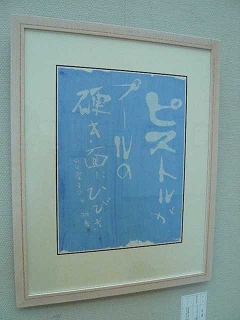 ピストルが
プールの
硬き面にひびき